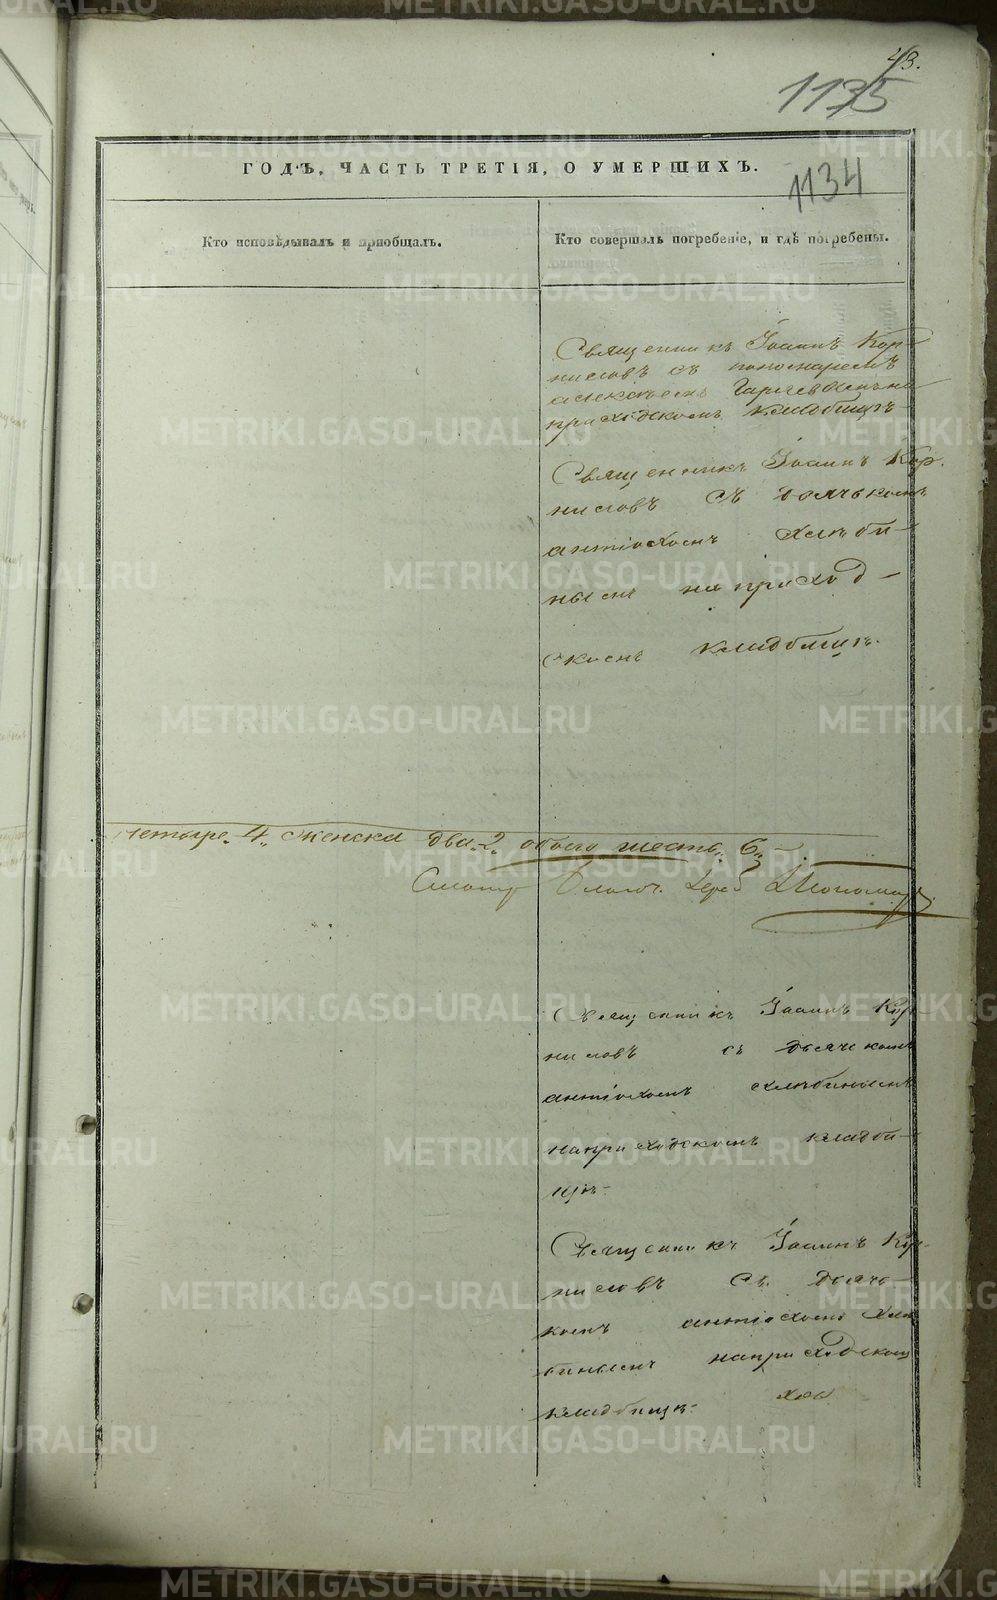 43.
1135
ГОДЪ, ЧАСТЬ ТРЕТІЯ, О УМЕРШИХЪ.
1134
Кто исповѣдывалъ и приобщалъ.
Кто совершалъ погребеніе, и гдѣ погребены.
Священникъ Іоаннъ Кор-
ниловъ съ пономаремъ
на
приходскомъ кладбищѣ
Священникъ Іоаннъ Кор.
ниловъ съ дьячькомъ
антіохомъ Хлѣби-
нымъ на приход-
скомъ кладбищѣ.
четыре. 4, женска два. 2. обоего шесть. 6.
Благоч.
Священникъ Іоаннъ Кор-
ниловъ съ дьячкомъ
антіохомъ Хлѣбинымъ
на приходскомъ кладби-
щѣ.
Священникъ Іоаннъ Кор-
ниловъ съ дьячь-
комъ антіохомъ Хлѣ
бинымъ на приходском
кладбищѣ.
METRIKI.GASO-URAL.RU